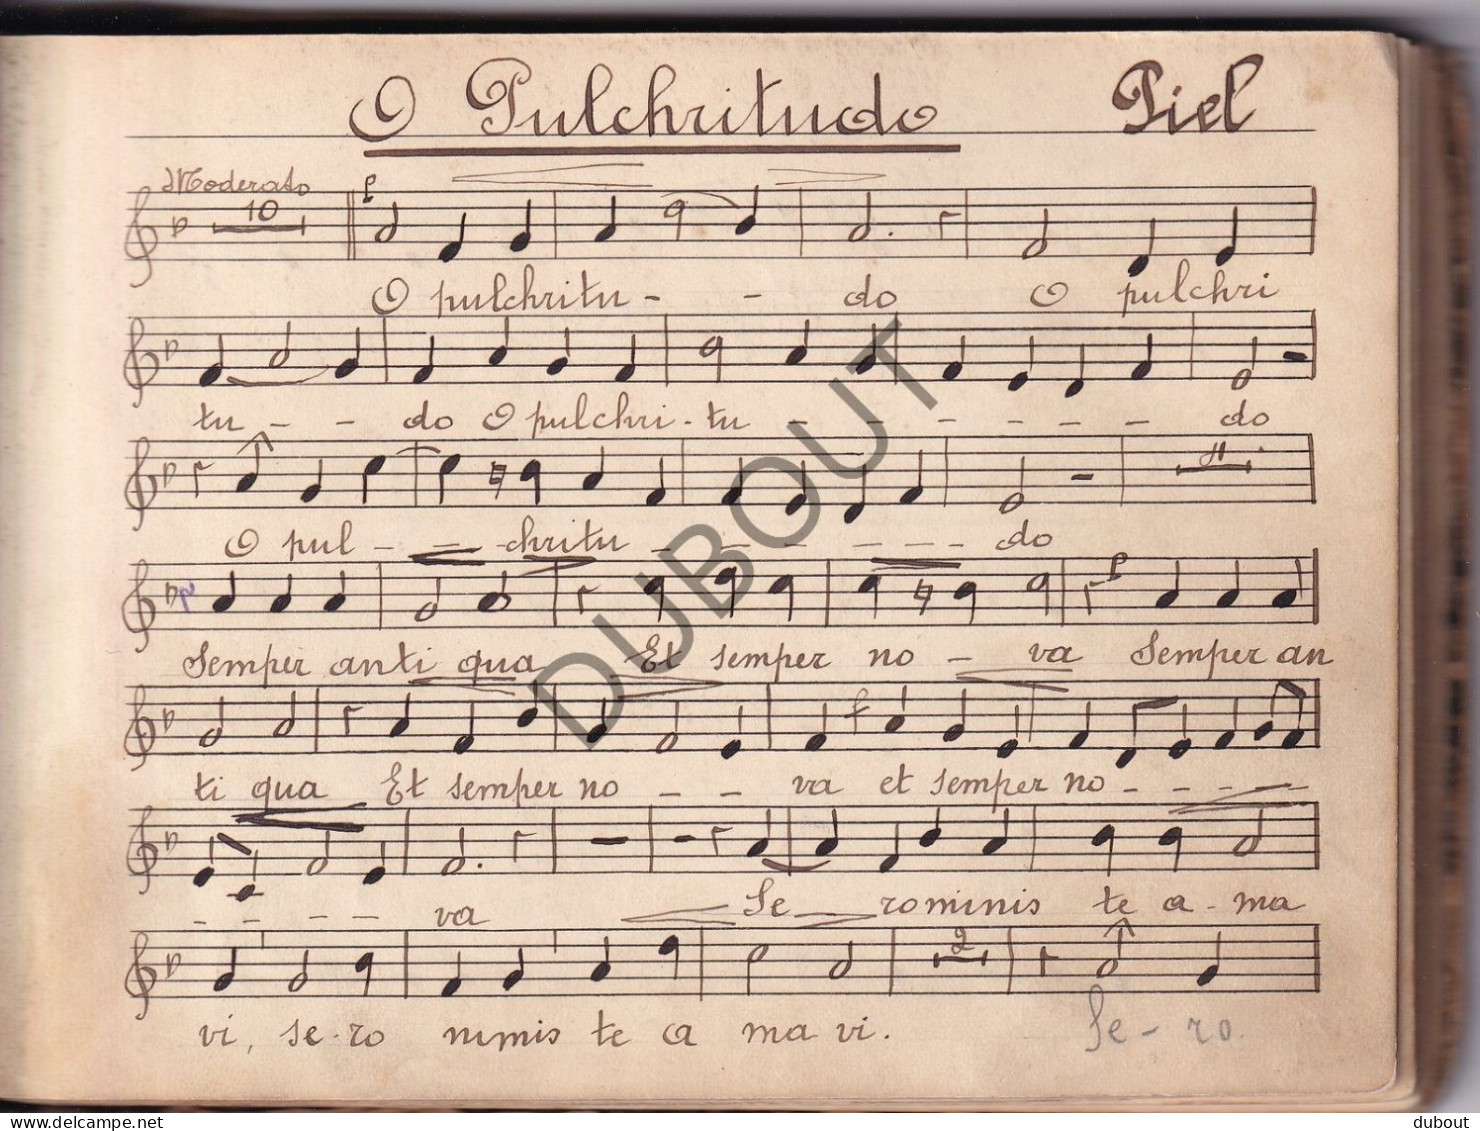 O Pulchritudo Piel
Moderato
10
p
O pulchritu - - do O pulchri
tu - - do O pulchri - tu - - - - - - do
4
O pul - - - chritu - - - - - - do
p
Semper anti qua Et semper no - va Semper an
f
ti qua Et semper no - - va et semper no - - - - -
- - - - va Se rominis te a - ma
2
vi, se - ro nimis te a ma vi. Se - ro.
DUBOUT
dubout